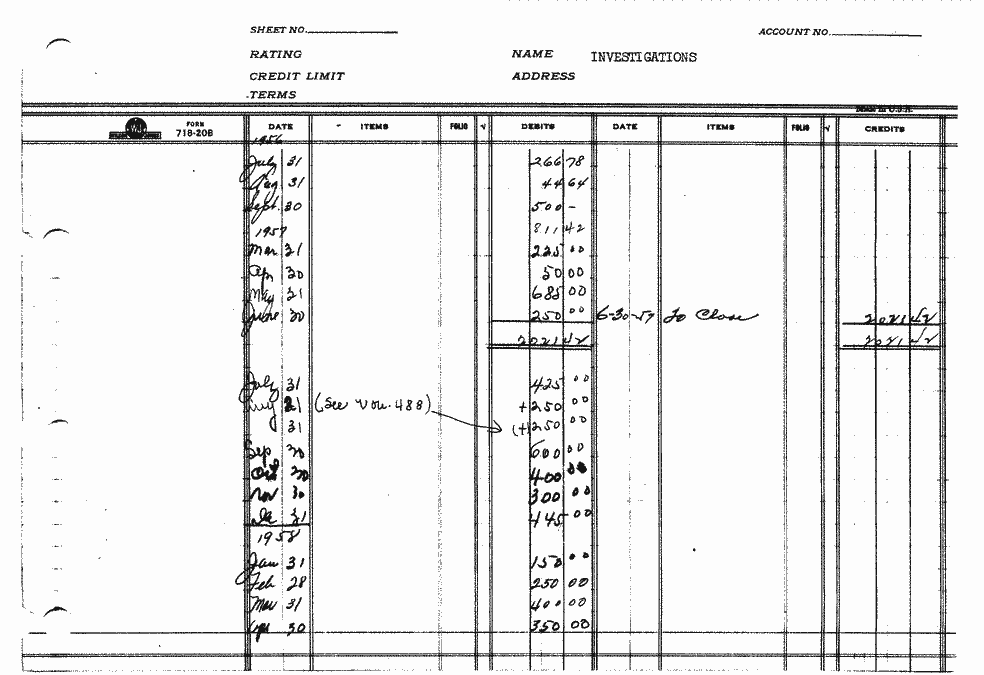 SHEET NO. ACCOUNT NO.
RATING NAME INVESTIGATIONS
CREDIT LIMIT ADDRESS
TERMS
FORM 718-20B DATE ITEMS FOLIO √ DEBITS DATE ITEMS FOLIO √ CREDITS
1956
July 31 266 78
Aug 31 44 64
Sept. 30 500 -
1957 811 42
Mar 31 225 00
Apr 30 50 00
May 31 685 00
June 30 250 00 6-30-57 To Close 2021 42
2021 42 2021 42
July 31 425 00
Aug 21 (See Vou. 488) +250 00
31 (+)250 00
Sep 30 600 00
Oct 30 400 00
Nov 30 300 00
De 31 445 00
1958
Jan 31 150 00
Feb 28 250 00
Mar 31 400 00
Apr 30 350 00